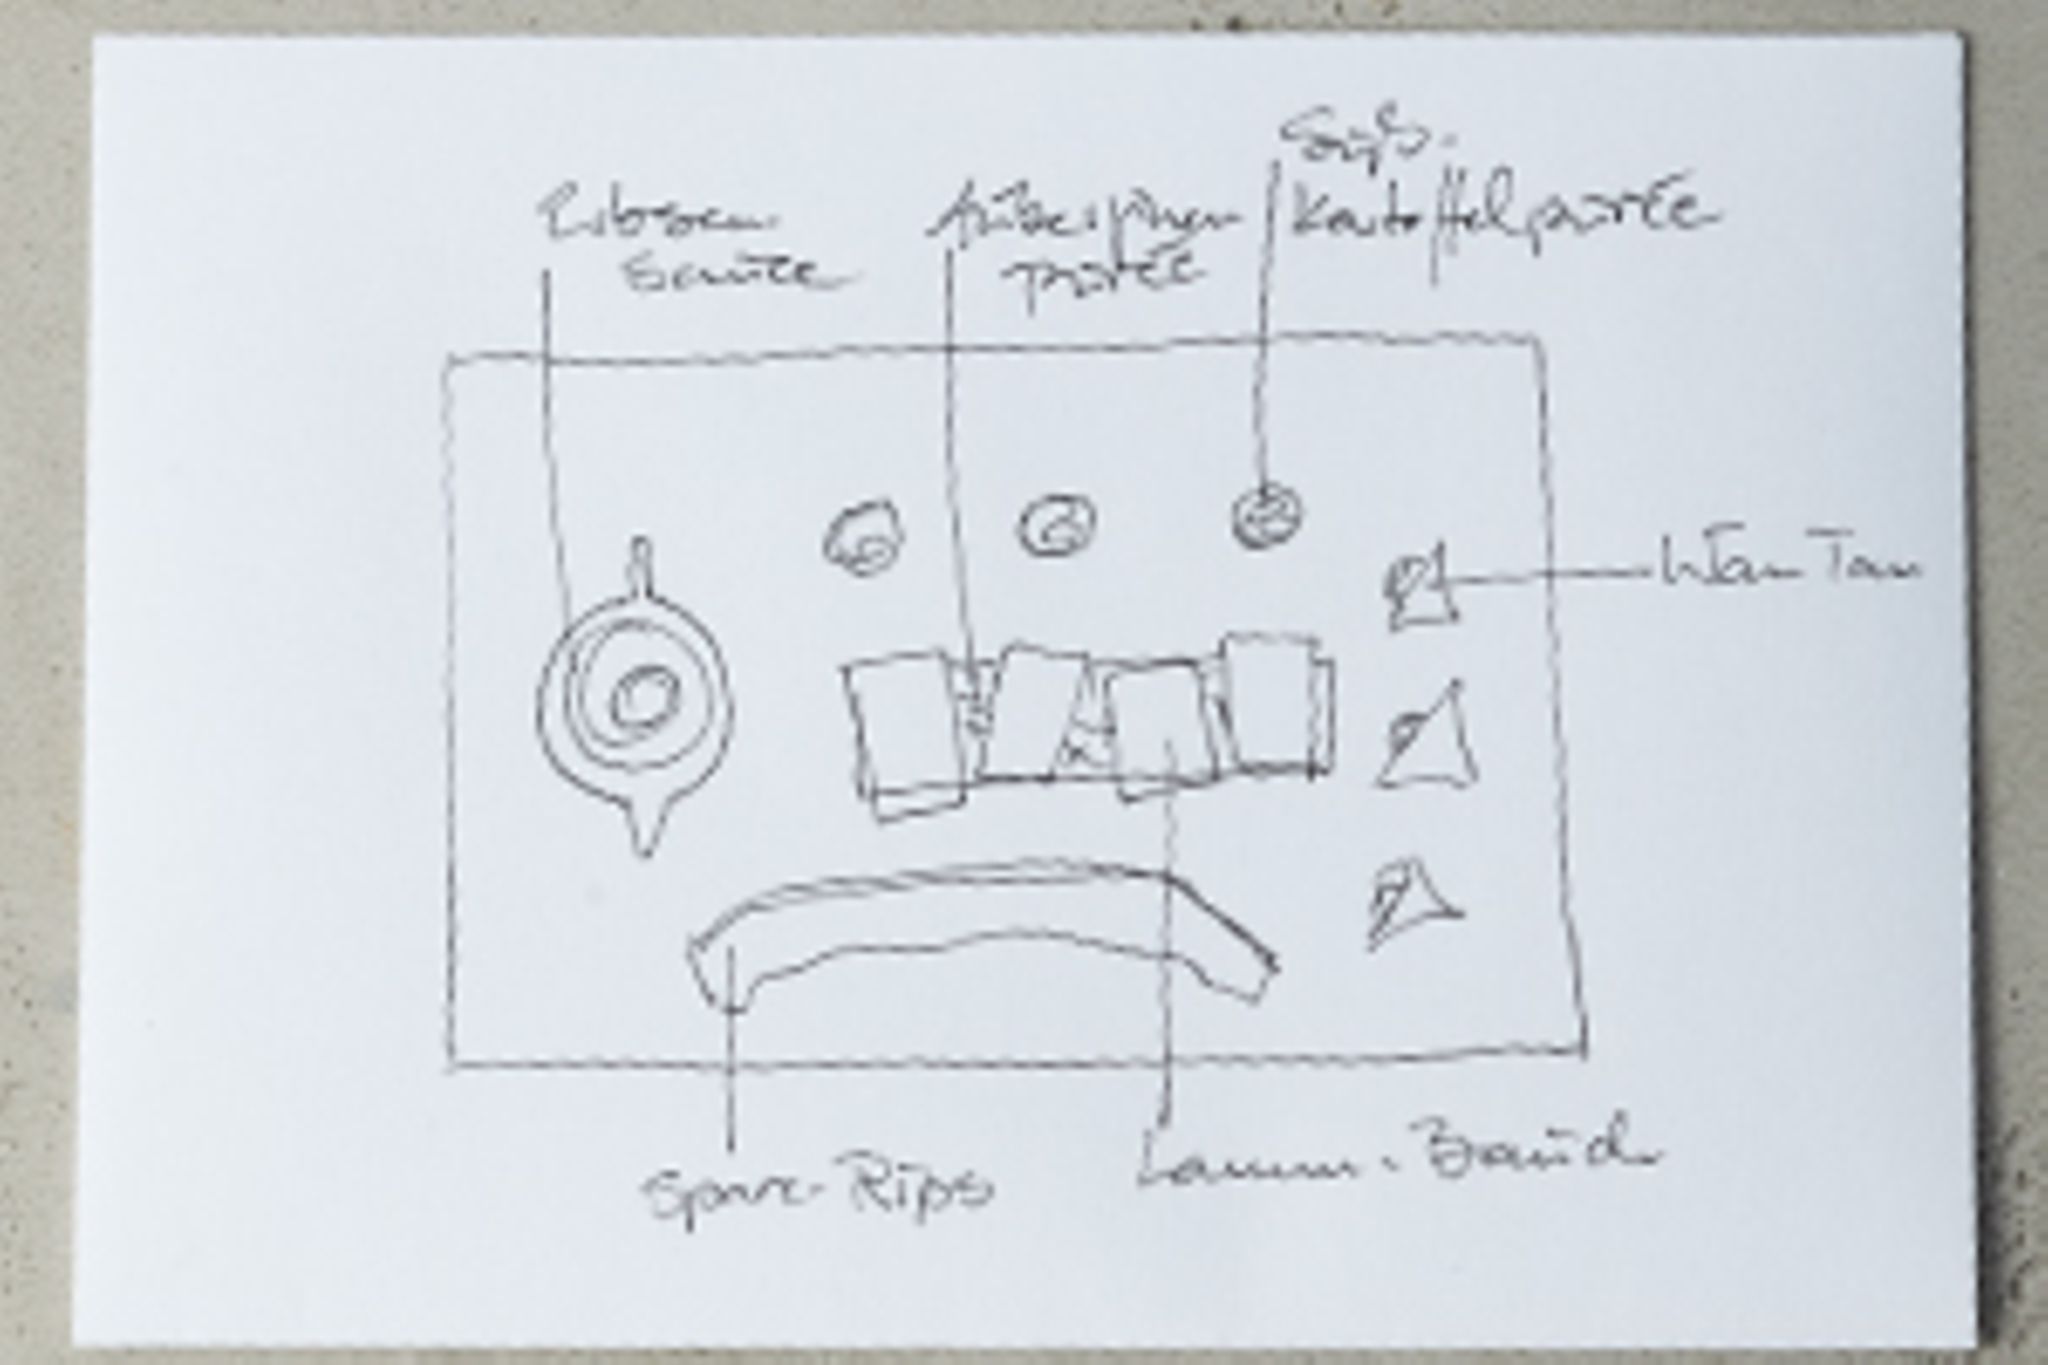 Sauce
püree
Süß-
kartoffelpüree
Wan Tan
Spare-Rips
Lamm-Bauch